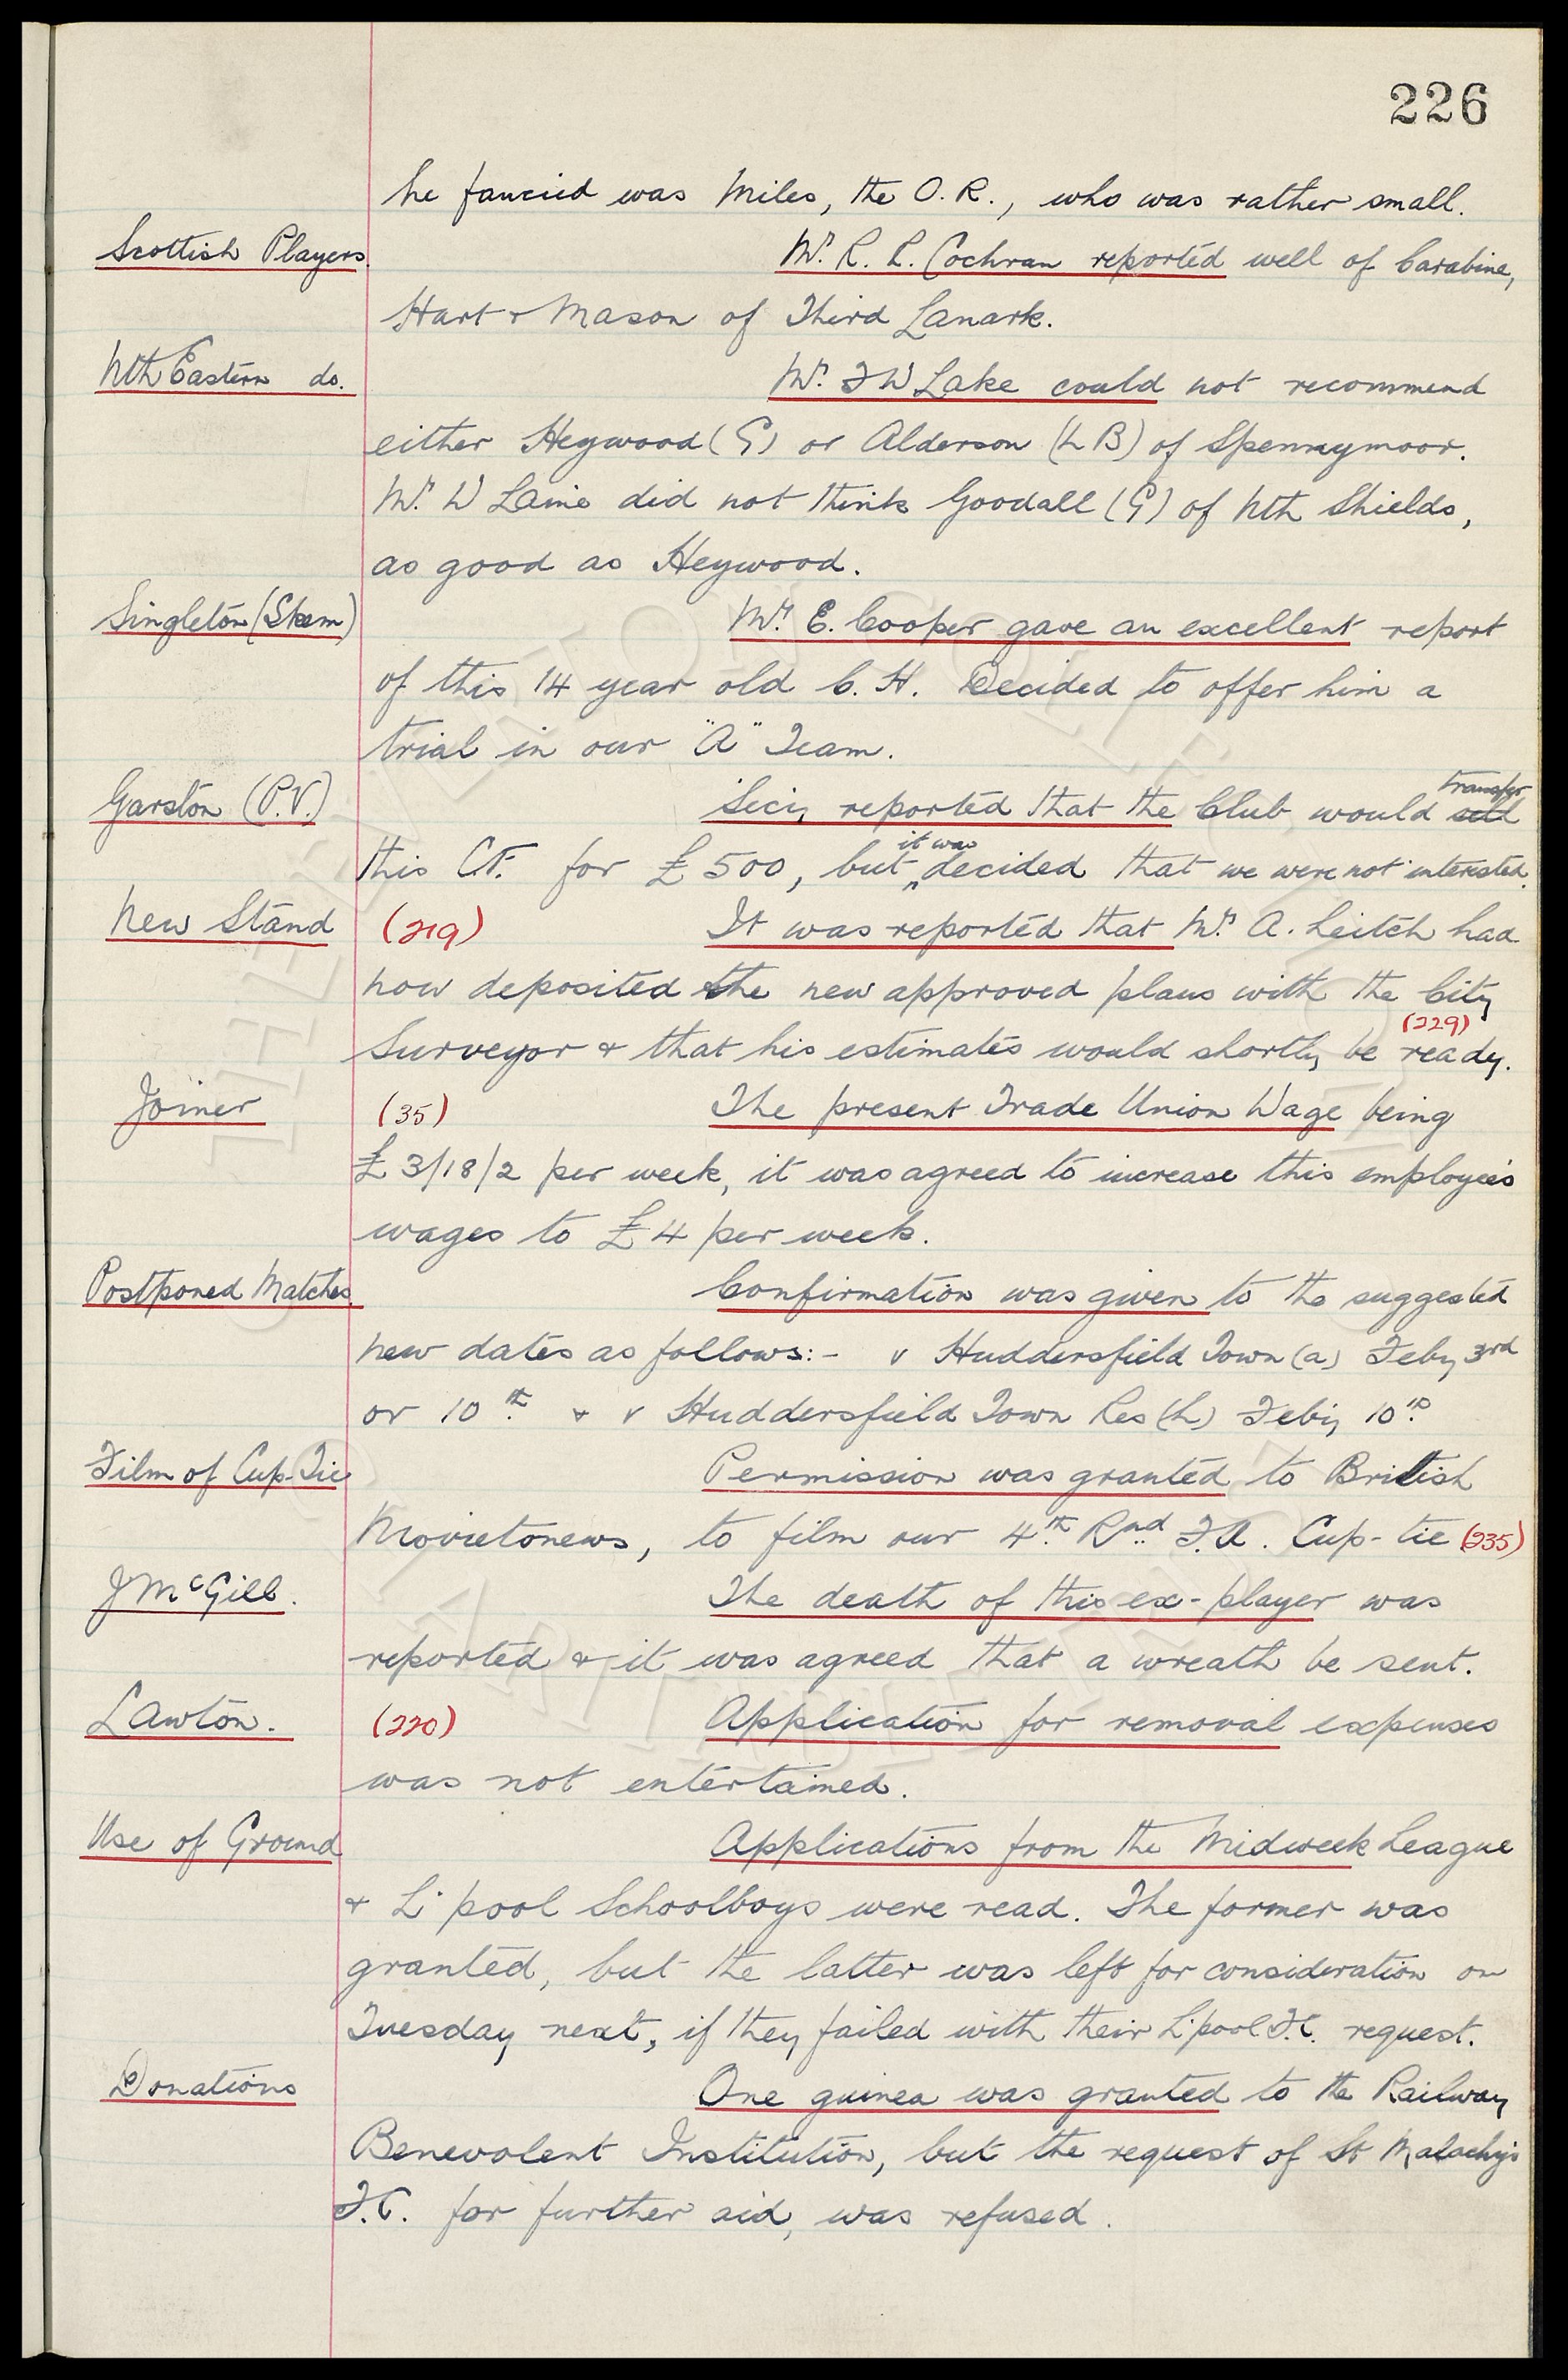 226
he fancied was Miles, the O.R., who was rather small.
Scottish Players. Mr. R. R. Cochran reported well of Carabine,
Hart & Mason of Third Lanark.
Nth Eastern do. Mr. F W Lake could not recommend
either Heywood (G) or Alderson (L B) of Spennymoor.
Mr. W Laine did not think Goodall (G) of Nth Shields,
as good as Heywood.
Singleton (Skem) Mr. E. Cooper gave an excellent report
of this 14 year old C. H. Decided to offer him a
trial in our "A" Team.
transfer
Garston (P.V.) Secy reported that the Club would sell
it was
this C.F. for £500, but decided that we were not interested.
New Stand (219) It was reported that Mr. A. Leitch had
now deposited the new approved plans with the City
(229)
Surveyor & that his estimates would shortly be ready.
Joiner (35) The present Trade Union Wage being
£3/18/2 per week, it was agreed to increase this employee's
wages to £4 per week.
Postponed Matches Confirmation was given to the suggested
new dates as follows:- v Huddersfield Town (a) Feby 3rd
or 10th. & v Huddersfield Town Res (h) Feby 10th.
Film of Cup-Tie Permission was granted to British
Movietonews, to film our 4th. Rnd F.A. Cup-tie (235)
J McGill. The death of this ex-player was
reported & it was agreed that a wreath be sent.
Lawton. (220) Application for removal expenses
was not entertained.
Use of Ground Applications from the Midweek League
& L'pool Schoolboys were read. The former was
granted, but the latter was left for consideration on
Tuesday next, if they failed with their L'pool F.C. request.
Donations One guinea was granted to the Railway
Benevolent Institution, but the request of St Malachy's
F.C. for further aid, was refused.